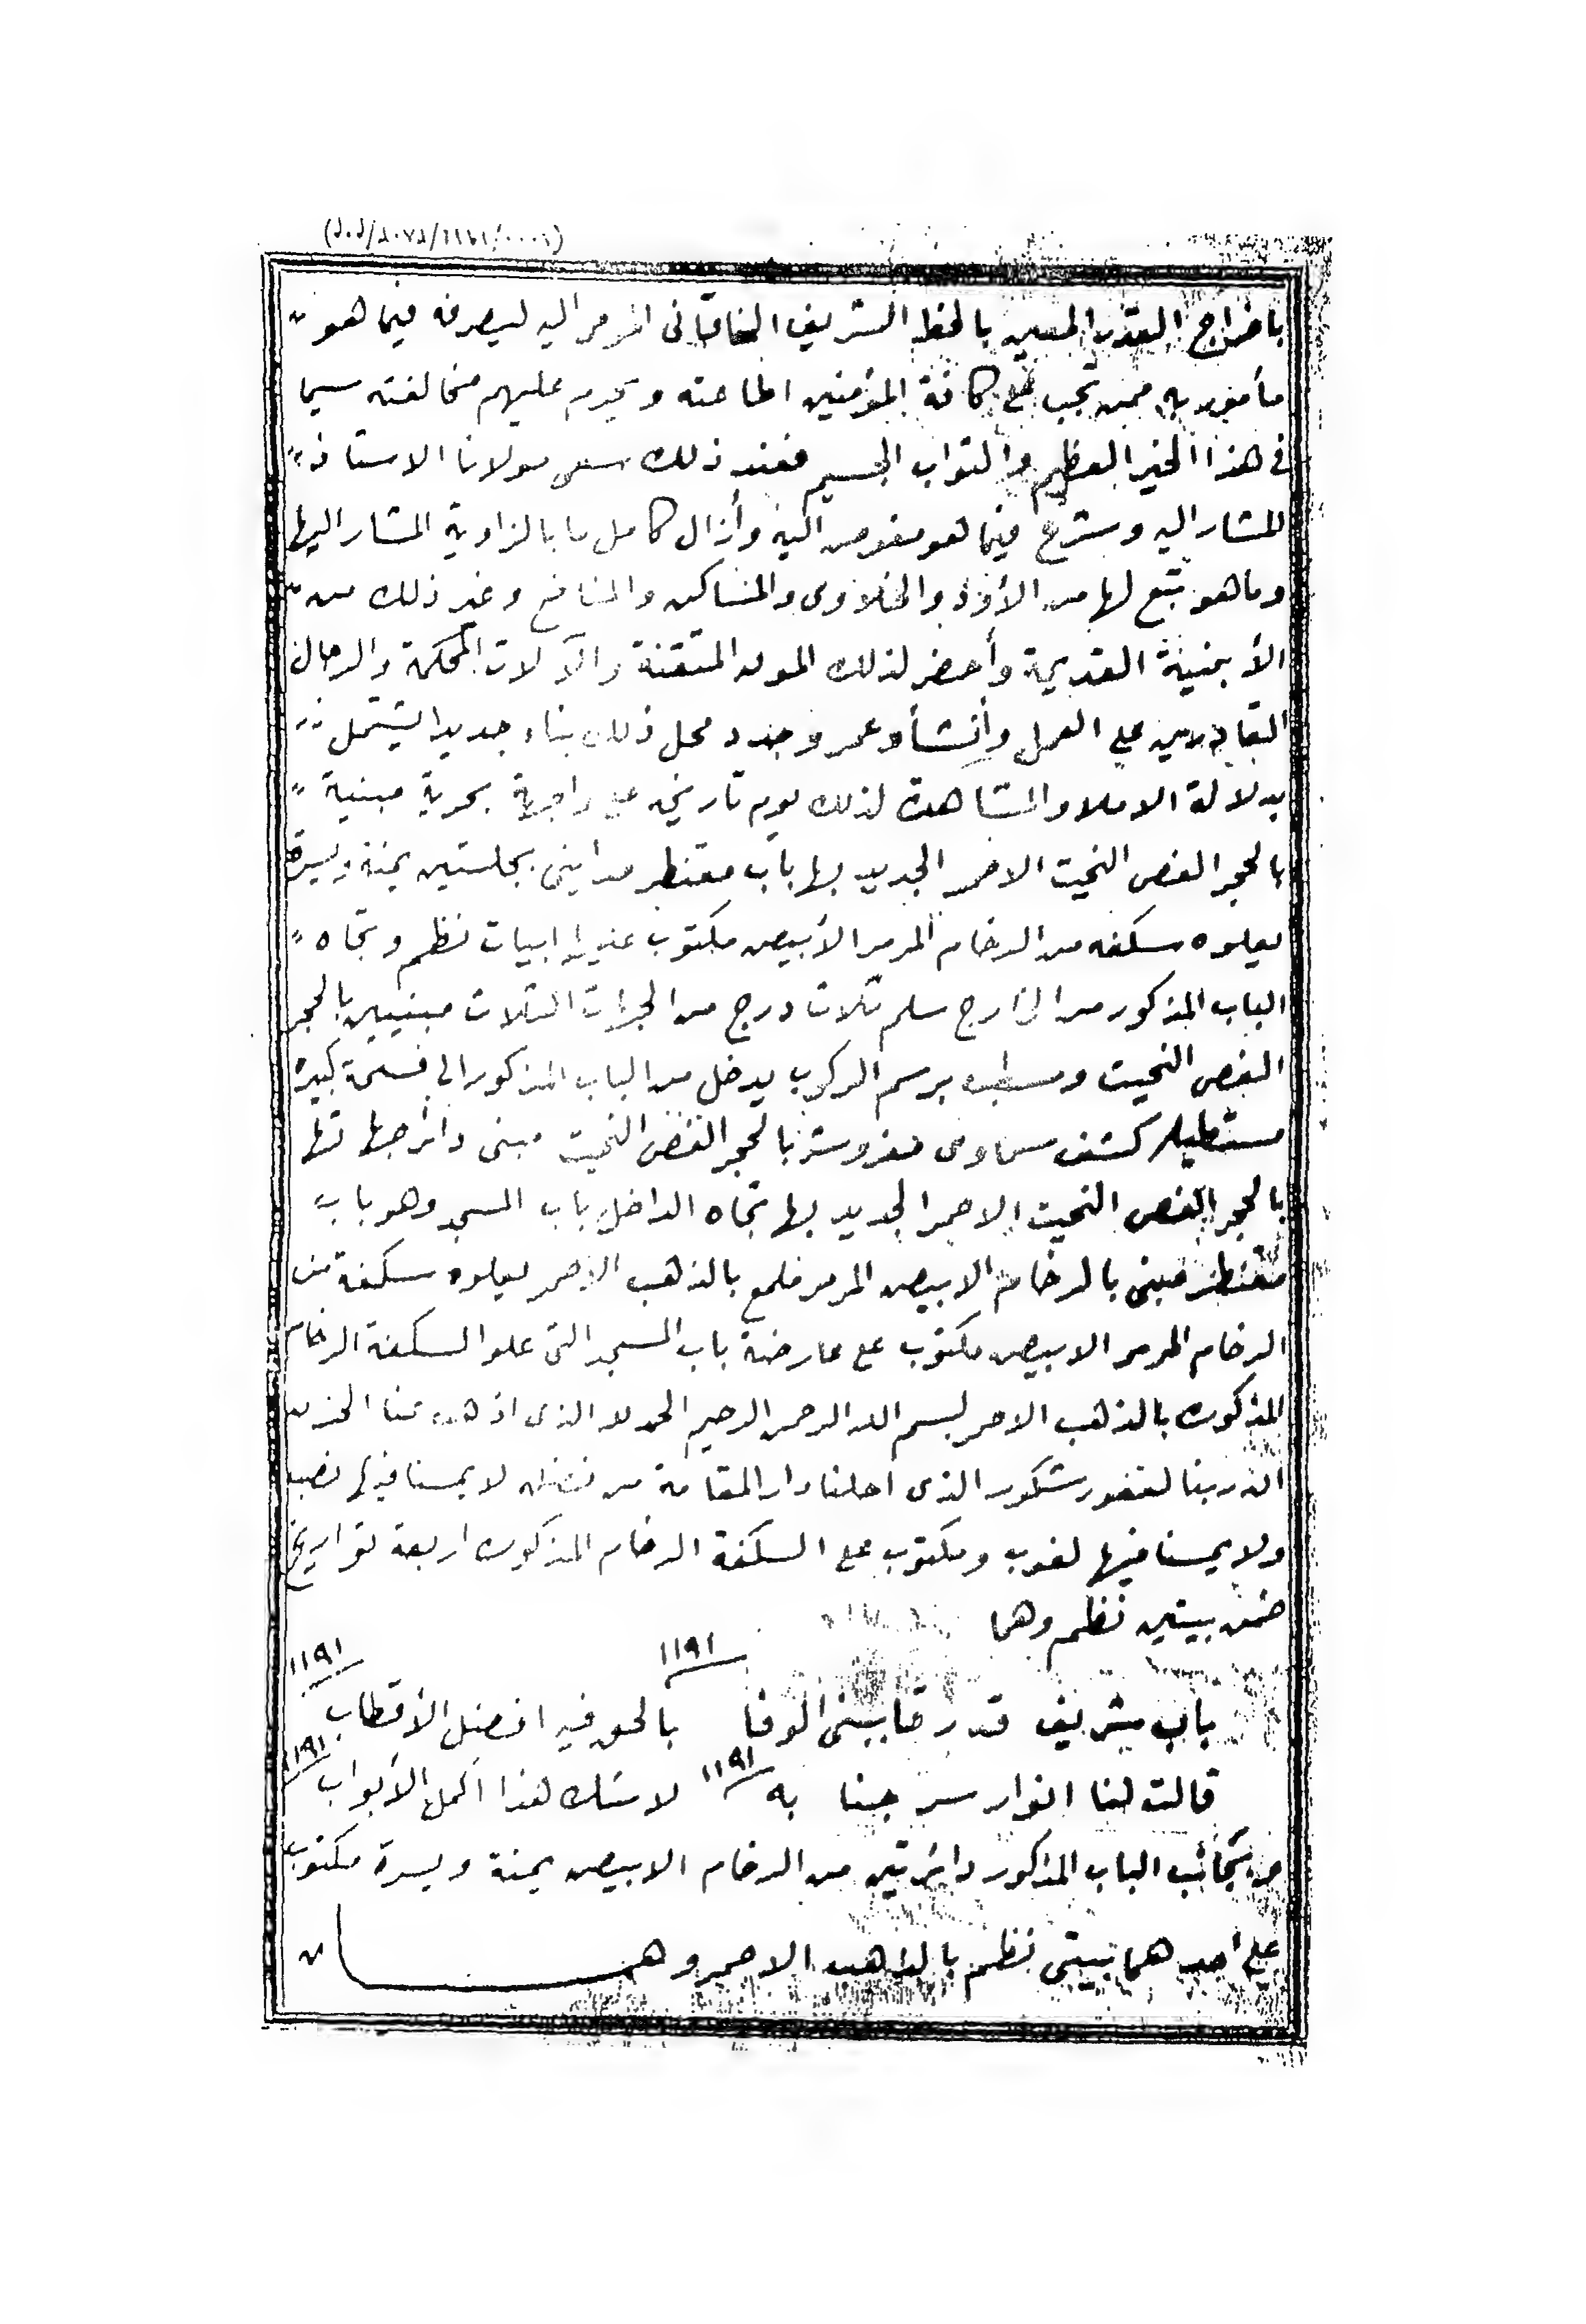 باخراج القدر المعين بالخط الشريف الخاقانى المومى اليه ليصرفه فيما هو
مأمور به ممن تجب على كافة المؤمنين اطاعته ويحرم عليهم مخالفته سيما
فى هذا الخير العظيم والثواب الجسيم فعند ذلك سعى مولانا الاستاذ
المشار اليه وشرع فيما هو مفوض اليه وأزال كامل ما بالزاوية المشار اليها
وما هو تبع لها من الأود والخلاوى والمساكن والمنافع وغير ذلك من
الأبنية القديمة وأحضر لذلك المون المتقنة والآلات المحكمة والرجال
القادرين على العمل وأنشأ وعمر وجدد محل ذلك بناء جديدا يشتمل
بدلالة الاملا والمشاهدة لذلك يوم تاريخه على واجهة بحرية مبنية
بالحجر الفص النحيت الاحمر الجديد بها باب مقنطر مداينى بجلستين يمنة ويسرة
يعلوه سكفه من الرخام المرمر الأبيض مكتوب عليها ابيات نظم وتجاه
الباب المذكور من الخارج سلم ثلاث درج من الجهات الثلاث مبنيين بالحجر
الفص النحيت ومسطبه برسم الركوب يدخل من الباب المذكور الى فسحة كبيرة
مستطيله كشف سماوى مفروش بالحجر الفص النحيت مبنى دائر جهاتها
بالحجر الفص النحيت الاحمر الجديد بها تجاه الداخل باب المسجد وهو باب
مقنطر مبنى بالرخام الابيض المرمر ملمع بالذهب الاحمر يعلوه سكفة من
الرخام المرمر الابيض مكتوب على عارضة باب المسجد التى علو السكفة الرخام
المذكوره بالذهب الاحمر بسم الله الرحمن الرحيم الحمد لله الذى اذهب عنا الحزن
ان ربنا لغفور شكور الذى احلنا دار المقامة من فضله لا يمسنا فيها نصب
ولا يمسنا فيها لغوب ومكتوب على السكفة الرخام المذكوره اربعة تواريخ
ضمن بيتين نظم وهما
١١٩١ ١١٩١
باب شريف قدر قا ببنى الوفا بالحق فيه افضل الأقطاب
قالت لنا انوار سر جنا به ١١٩١ لا شك هذا اكمل الأبواب ١١٩١
الباب المذكور دائرتين من الرخام الابيض يمنة ويسرة مكتوب
على احدهما بيتى نظم بالذهب الاحمر وهما